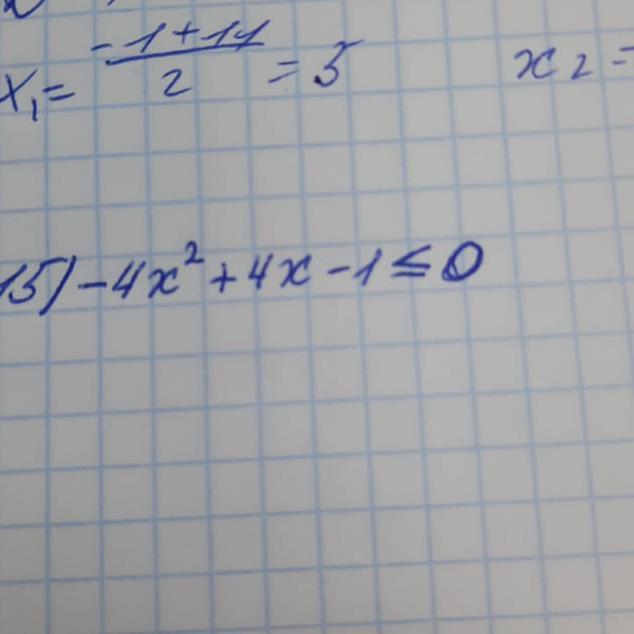 x₁ = (-1+11)/2 = 5 x₂ =
15) -4x² + 4x - 1 ≤ 0